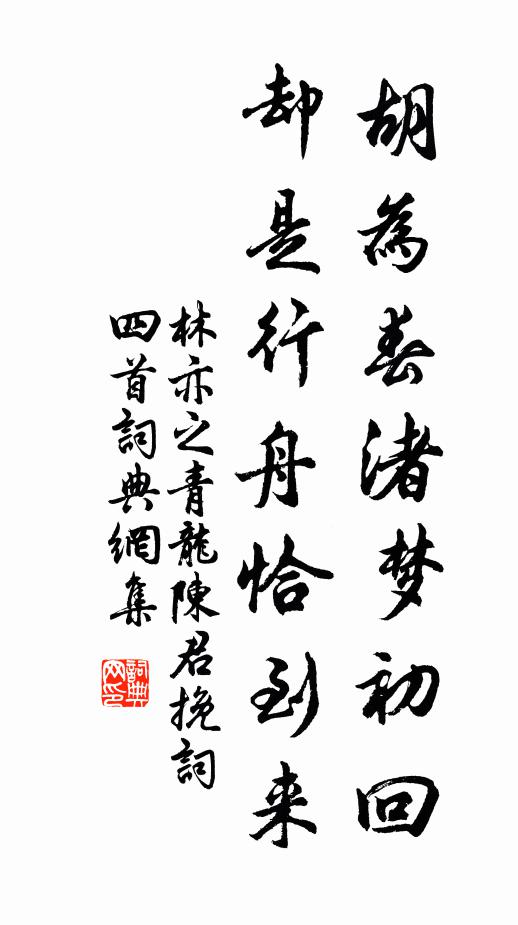 胡為春渚梦初回
却是行舟恰到来
林亦之青龍陳君挽詞
四首詞典網集
詞典网印